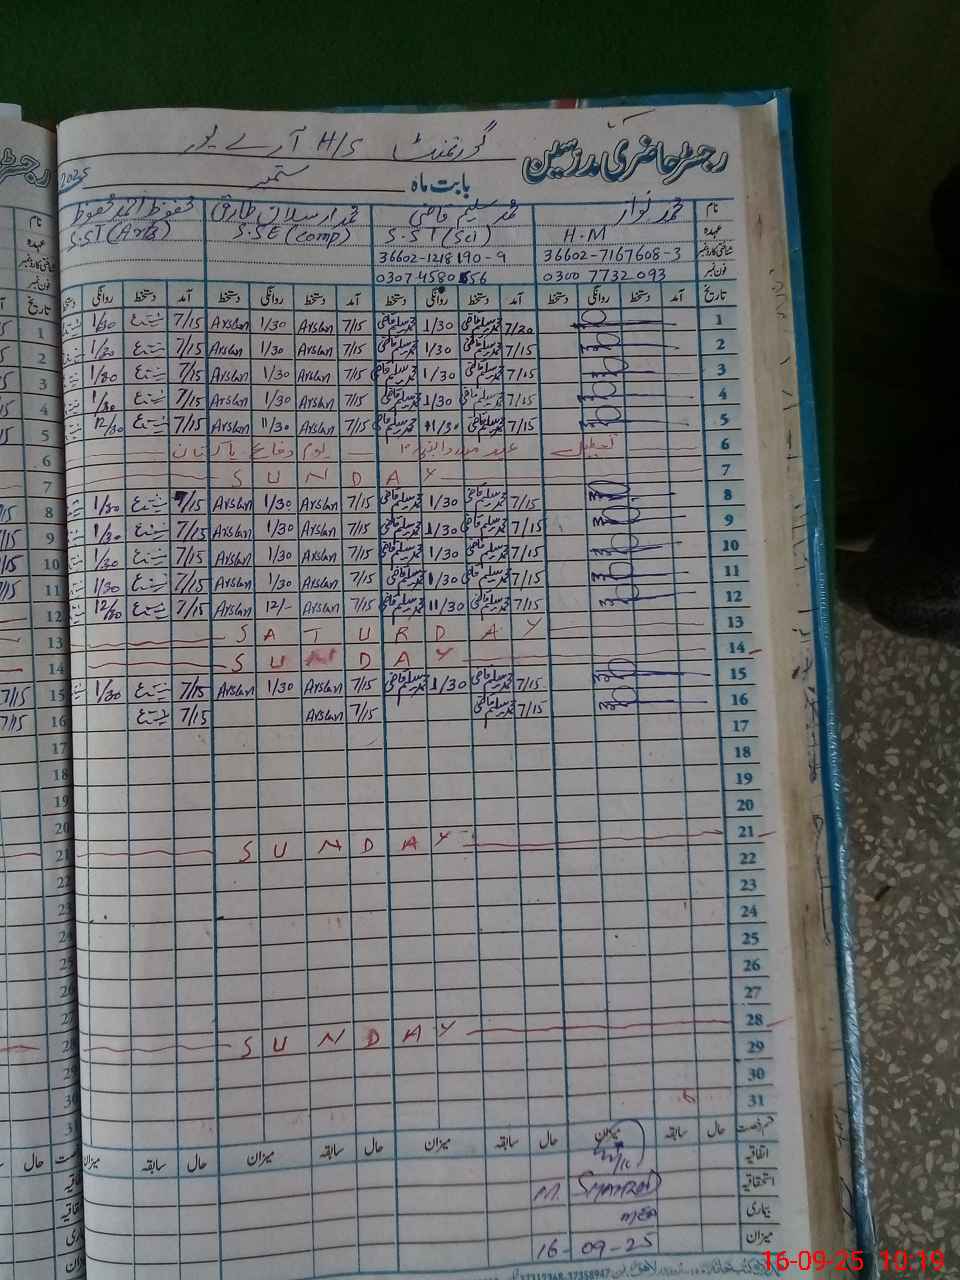 رجسٹر حاضری مدرسین گورنمنٹ H/S آرے پور
بابت ماہ ستمبر 2025
نام محمد نواز محمد سلیم قاضی محمد ارسلان طارق محفوظ احمد محفوظ
عہدہ H.M S.ST (Sci) S.SE (comp) S.ST (Arts)
شناختی کارڈ نمبر 36602-7167608-3 36602-1218190-9
فون نمبر 0300 7732093 0307 4580656
تاریخ آمد دستخط روانگی دستخط آمد دستخط روانگی دستخط آمد دستخط روانگی دستخط آمد دستخط روانگی
1 7/20 محمد سلیم قاضی 1/30 محمد سلیم قاضی 7/15 Arslan 1/30 Arslan 7/15 1/30
2 7/15 محمد سلیم قاضی 1/30 محمد سلیم قاضی 7/15 Arslan 1/30 Arslan 7/15 1/30
3 7/15 محمد سلیم قاضی 1/30 محمد سلیم قاضی 7/15 Arslan 1/30 Arslan 7/15 1/30
4 7/15 محمد سلیم قاضی 1/30 محمد سلیم قاضی 7/15 Arslan 1/30 Arslan 7/15 1/30
5 7/15 محمد سلیم قاضی 11/30 محمد سلیم قاضی 7/15 Arslan 11/30 Arslan 7/15 12/30
6 تعطیل عید میلاد النبی یوم دفاع پاکستان
7 SUNDAY
8 7/15 محمد سلیم قاضی 1/30 محمد سلیم قاضی 7/15 Arslan 1/30 Arslan 7/15 1/30
9 7/15 محمد سلیم قاضی 1/30 محمد سلیم قاضی 7/15 Arslan 1/30 Arslan 7/15 1/30
10 7/15 محمد سلیم قاضی 1/30 محمد سلیم قاضی 7/15 Arslan 1/30 Arslan 7/15 1/30
11 7/15 محمد سلیم قاضی 1/30 محمد سلیم قاضی 7/15 Arslan 1/30 Arslan 7/15 1/30
12 7/15 محمد سلیم قاضی 11/30 محمد سلیم قاضی 7/15 Arslan 12/- Arslan 7/15 12/30
13 SATURDAY
14 SUNDAY
15 7/15 محمد سلیم قاضی 1/30 محمد سلیم قاضی 7/15 Arslan 1/30 Arslan 7/15 1/30
16 7/15 محمد سلیم قاضی 7/15 Arslan 7/15
17
18
19
20
21 SUNDAY
22
23
24
25
26
27
28 SUNDAY
29
30
31
قسم رخصت حال سابقہ میزان حال سابقہ میزان حال سابقہ میزان حال سابقہ میزان
اتفاقیہ
استحقاقیہ M. SHAHZAD
بیماری MEA
میزان 16-09-25
16-09-25 10:19